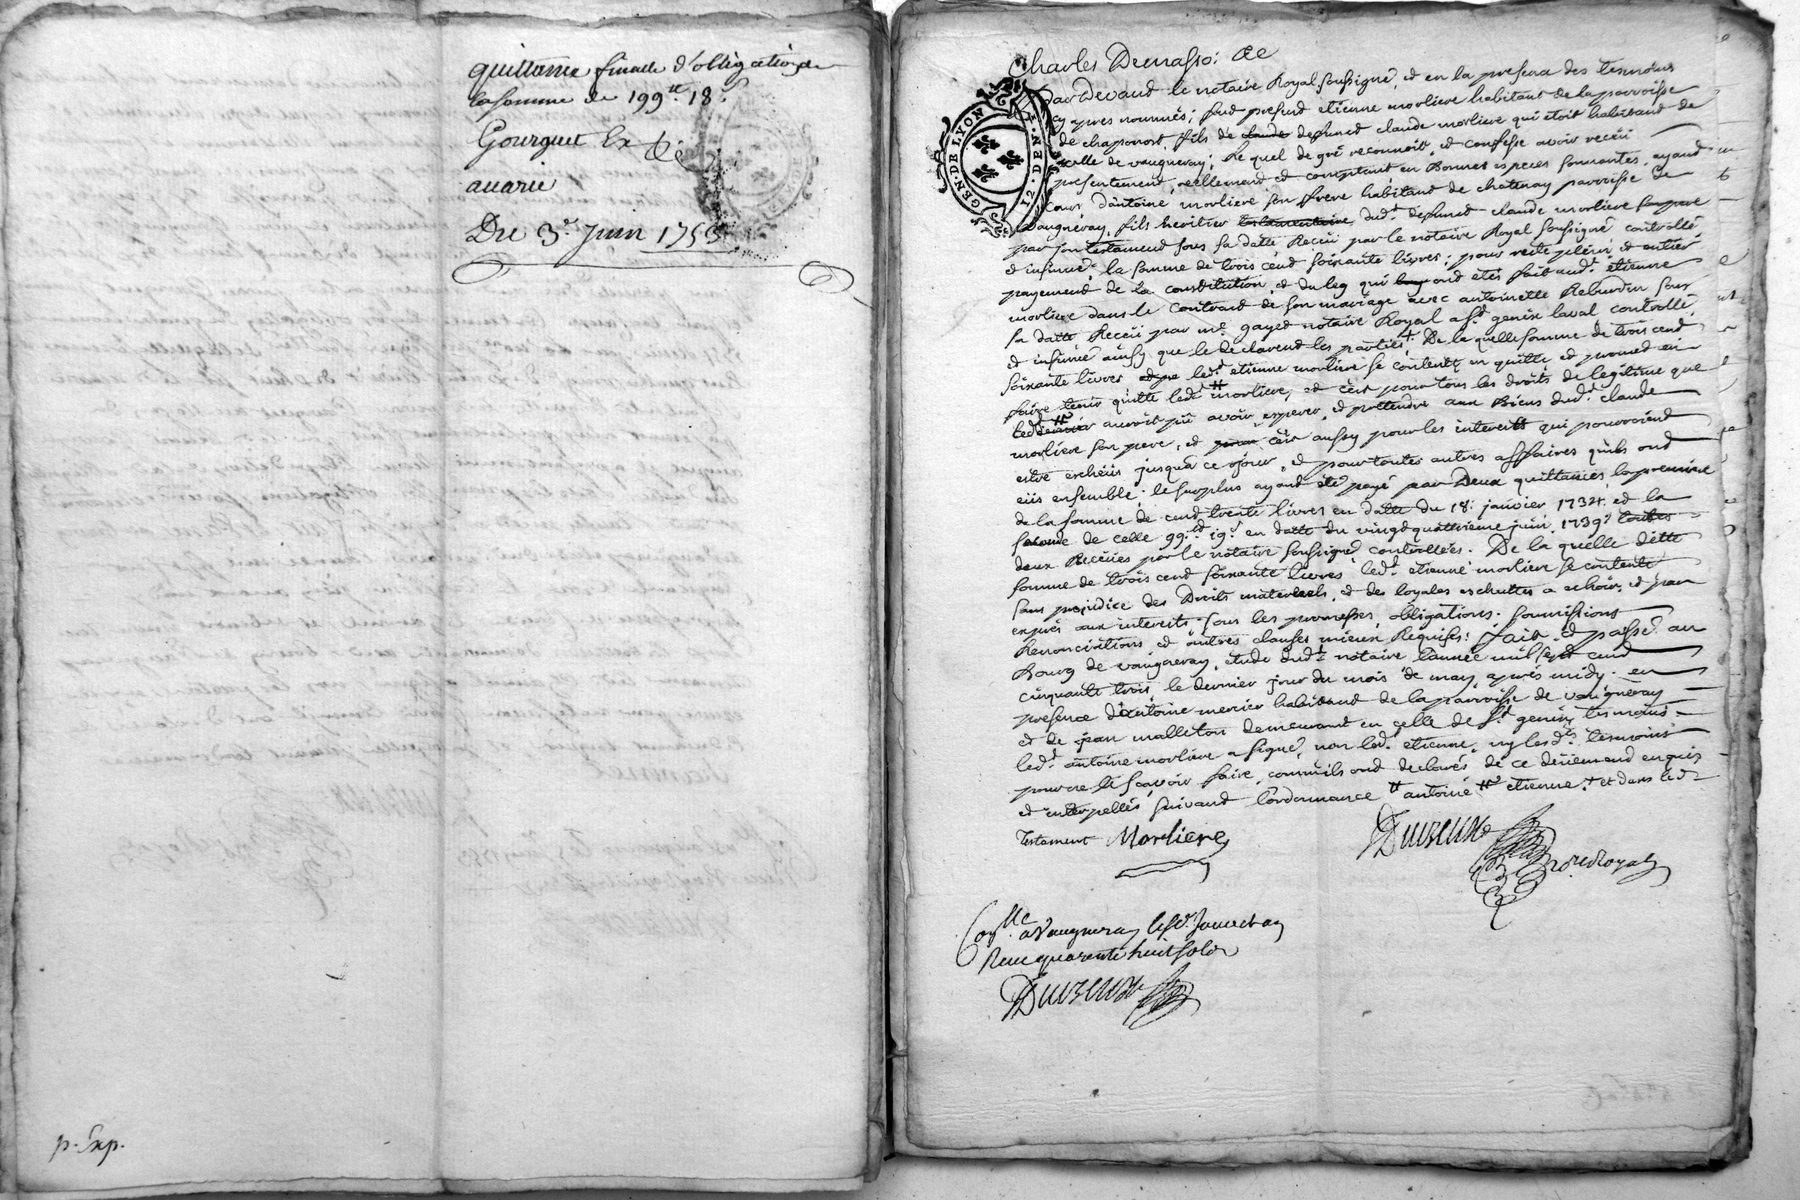 quittance finalle d'obligation de
la somme de 199ᵗᵗ 18ˢ
Gourguet
avarie
Du 3ᵉ Juin 1753
p. Exp.
Charles Demasso: &c
GEN. DE LYON 12. DEN.
Par Devand le notaire Royal soussigné, et en la presence des tesmoins
cy apres nommés; fud present etienne morliere habitant de la parroisse
de chaponost, fils de claude deffunct claude morliere qui étoit habitant de
celle de vaugneray; lequel de gré reconnoit et confesse avoir receü
presentement, reellement et comptant en Bonnes especes sonnantes, ayant
cours d'antoine morliere son frere habitant de chatenay parroisse de
vaugneray, fils heritier testamentaire dudᵗ deffunct claude morliere son pere
par son testament sous sa datte Receü par le notaire Royal soussigné controllé
et insinué; la somme de trois cend soixante livres; pour reste plein et entier
payement de la constitution, et du leg qui luy ont etés fait audᵗ etienne
morliere dans le contract de son mariage avec antoinette Rebourdin sous
sa datte Receü par mᵉ gayet notaire Royal a sᵗ genix laval controllé
et insinué aussy que le declarent les parties; De la quelle somme de trois cend
soixante livres ledᵗ etienne morliere se contente en quitte et promed en
faire tenir quitte ledᵗ tt morliere, et c'est pour tous les droits de legitime que
ledᵗ tt auroit pü avoir, esperer, et pretendre aux Biens dudᵗ claude
morliere son pere, et c'est aussy pour les interetts qui pourroient
estre escheüs jusqu'a ce jour, et pour toutes autres affaires qu'ils ont
eüs ensemble; le surplus ayant été payé par Deux quittances, la premiere
de la somme de cend trente livres en datte du 18ᵉ janvier 1732 et la
seconde de celle 99ᵗᵗ 19ˢ en datte du vingt quattrieme juin 1739 toutes
deux Receües par le notaire soussigné controllées. De la quelle ditte
somme de trois cend soixante livres ledᵗ etienne morliere se contente
sans prejudice des Droits maternels, et des loyales escheuttes a echoir, et par
exprés aux interetts. sous les promesses, obligations, soumissions
Renonciations et autres clauses mieux Requises; fait et passé au
Bourg de vaugneray, etude dudᵗ notaire l'année mil sept cend
cinquante trois, le dernier jour du mois de may, aprés midy. en
presence d'antoine mercier habitant de la parroisse de vaugneray
et de jean malleton demeurant en celle de sᵗ genix tesmoins
ledᵗ antoine morliere a signé, non ledᵗ etienne, ny lesdᵗˢ tesmoins
pour ne le sçavoir faire, comm'ils ont declarés de ce deüement enquis
et interpellés suivant l'ordonnance tt antoine tt etienne. + et dans ledᵗ
testament Morliere
Duvernay noʳᵉ Royal
Conˡˡᵉ a Vaugneray le
Receu quarente huit sols